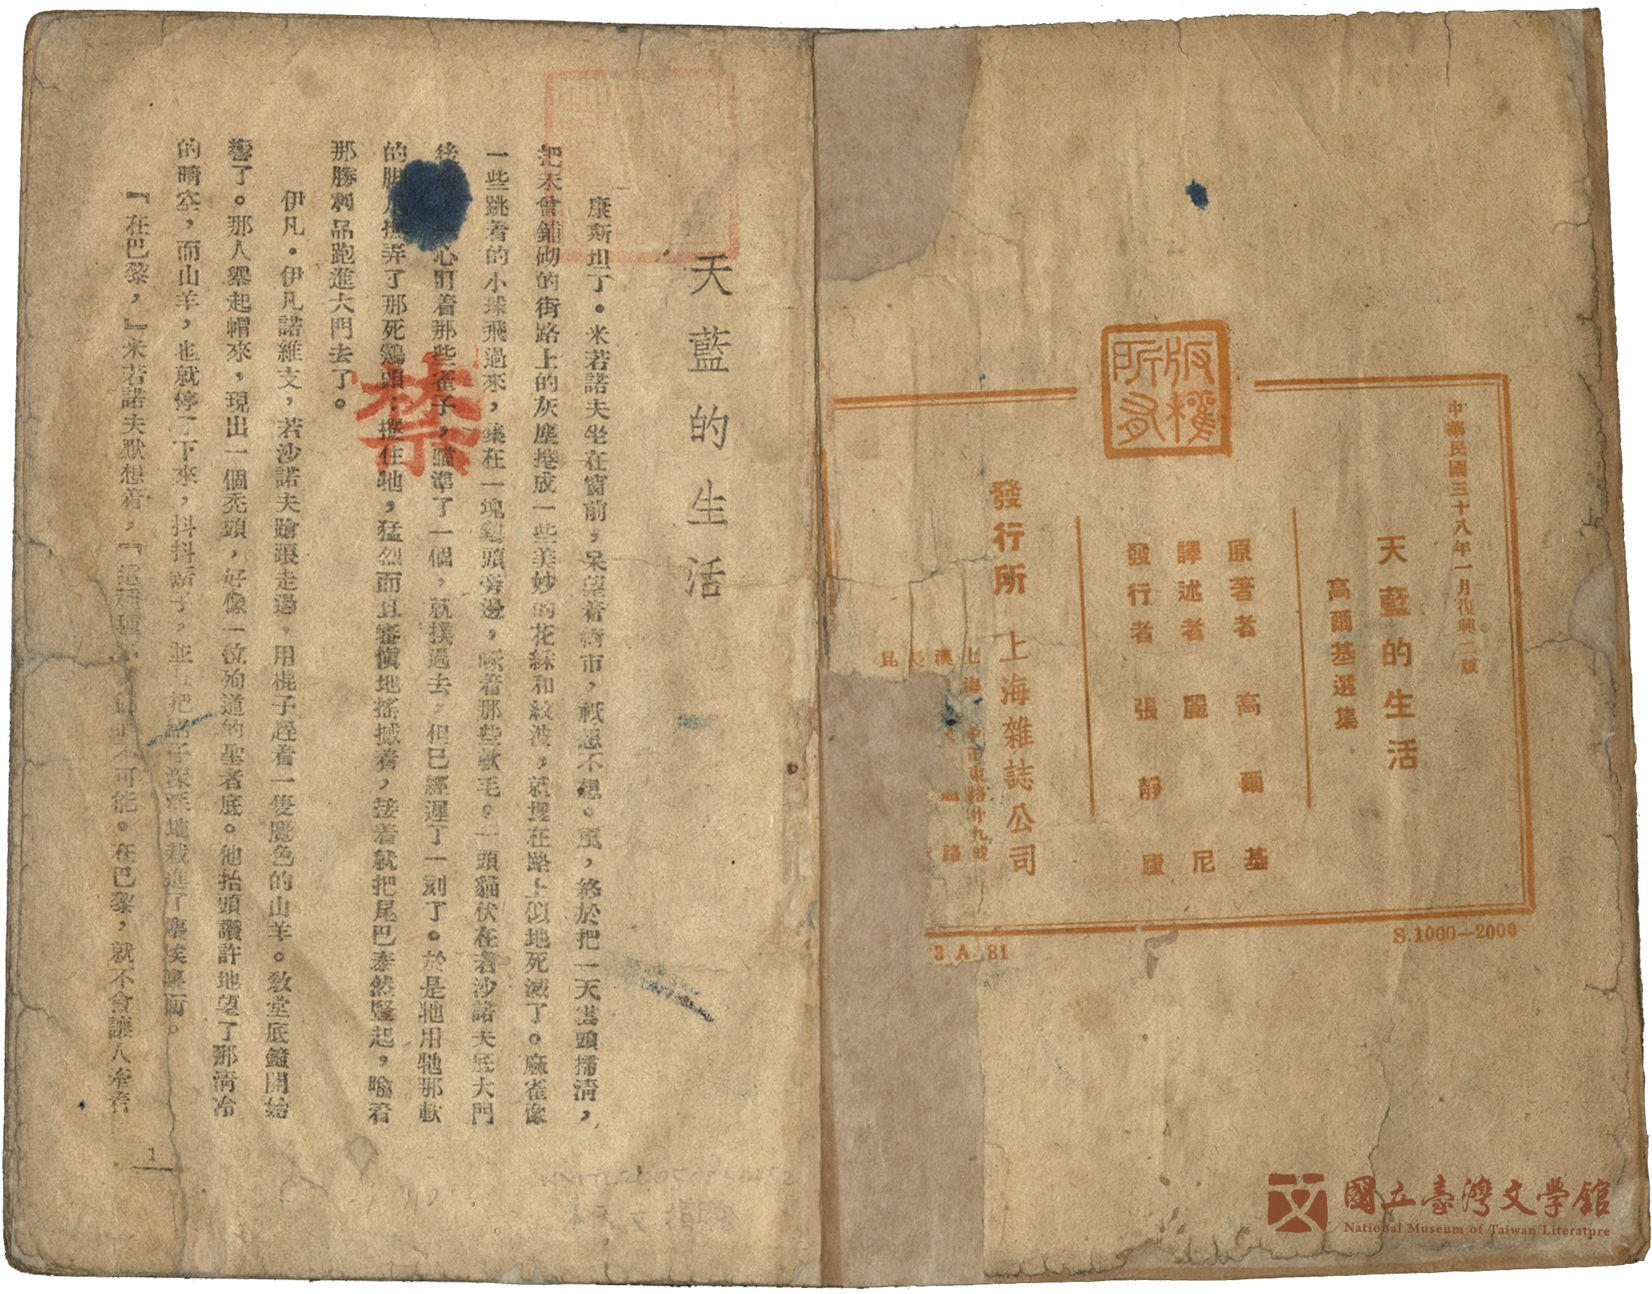 版權所有
中華民國三十八年一月復興二版
天藍的生活
高爾基選集
原著者 高爾基
譯述者 麗尼
發行者 張靜廬
發行所 上海雜誌公司
S.1000—2000
3 A 81
天藍的生活
康斯坦丁。米若諾夫坐在窗前,呆望着街市,祇想不想。風,終於把一天雲頭掃清,
把未曾鋪砌的街路上的灰塵捲成一些美妙的花綵和紋波,就埋在路上似地死滅了。麻雀像
一些跳着的小球飛過來,集在一塊鷄頭旁邊,啄着那些軟毛。一頭貓伏在若沙諾夫底大門
心盯着那些雀子,瞄準了一個,就撲過去,但已經遲了一刻了。於是牠用牠那軟
的脚爪撫弄了那死鷄頭;攫住牠,猛烈而且審愼地搖撼着,接着就把尾巴泰然豎起,噙着
那勝利品跑進大門去了。
伊凡。伊凡諾維支,若沙諾夫蹌踉走過,用棍子趕着一隻塵色的山羊。敎堂底鐘開始
響了。那人舉起帽來,現出一個禿頭,好像一位殉道的聖者底。他抬頭讚許地望了那淸冷
的晴空,而山羊,也就停了下來,抖抖鬍子,並且把蹄子深深地栽進了塵埃裏面。
『在巴黎,』米若諾夫默想着,『這種
可能。在巴黎,就不會讓人牽着
禁
1
國立臺灣文學館
National Museum of Taiwan Literature